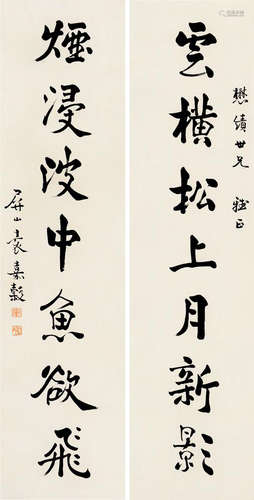 懋績世兄 雅正
雲橫松上月新影
煙浸波中魚欲飛
屏山袁嘉穀